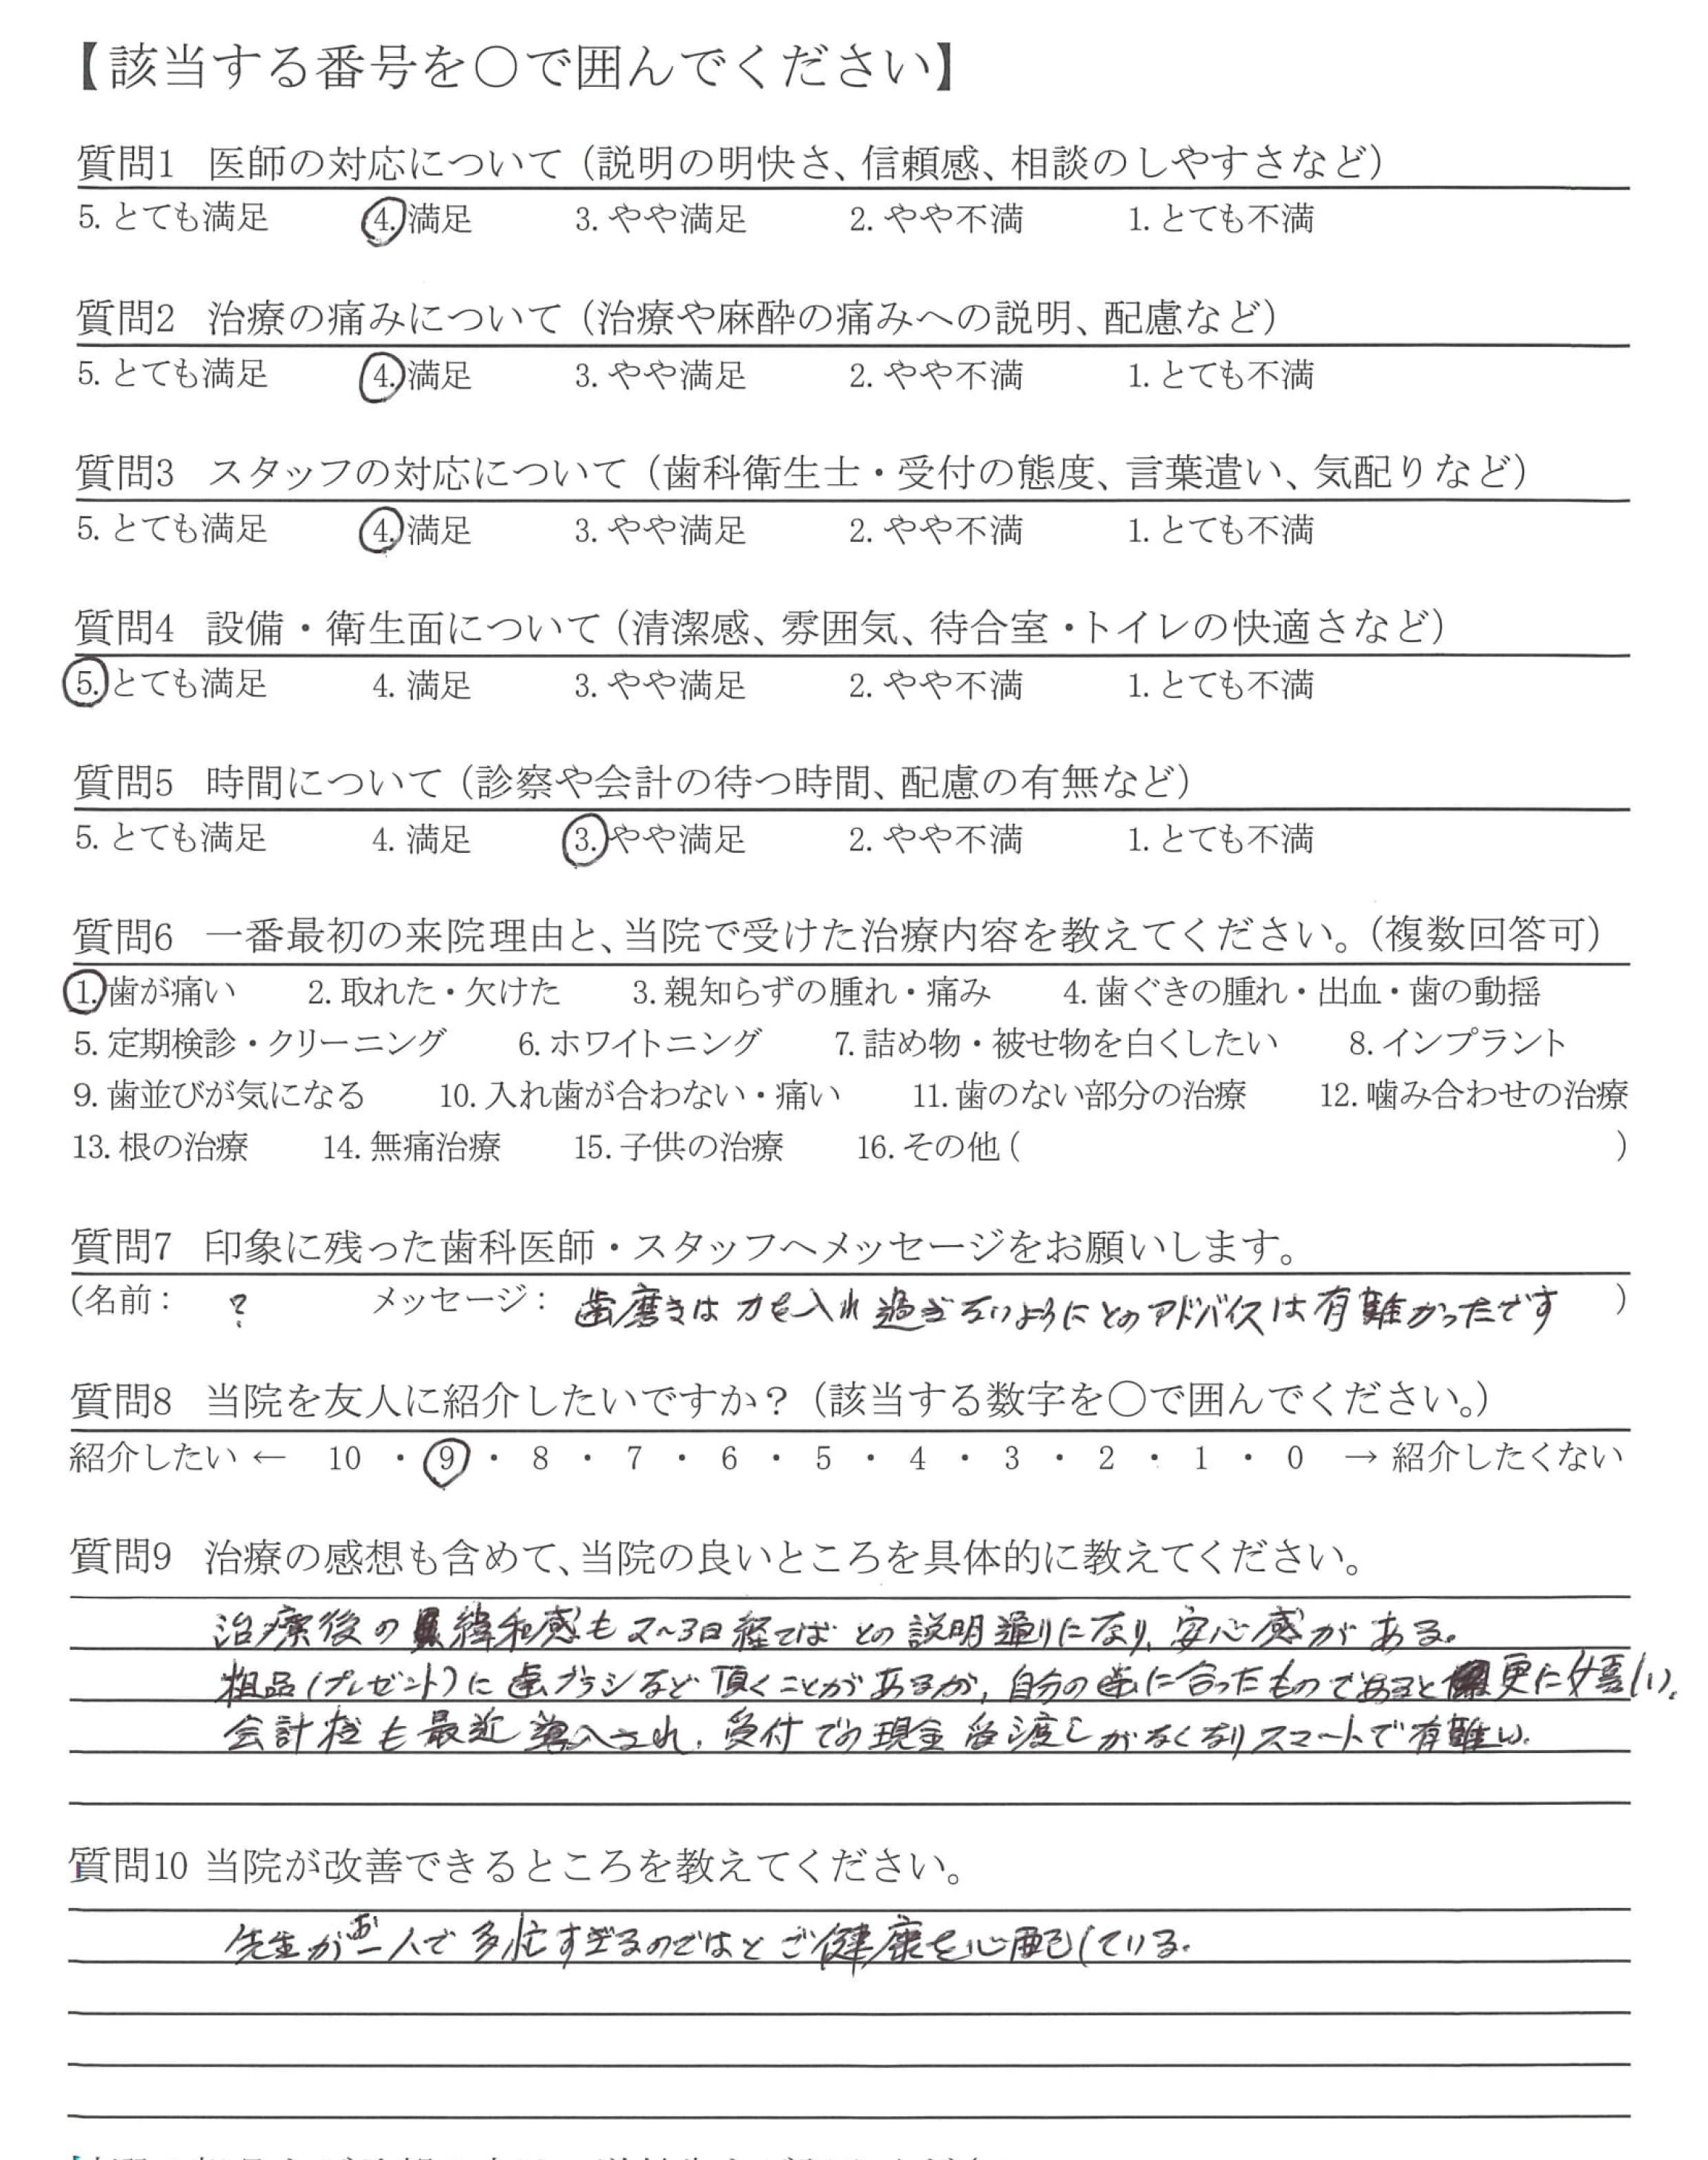 【該当する番号を○で囲んでください】
質問1 医師の対応について（説明の明快さ、信頼感、相談のしやすさなど）
5. とても満足 4. 満足 3. やや満足 2. やや不満 1. とても不満
質問2 治療の痛みについて（治療や麻酔の痛みへの説明、配慮など）
5. とても満足 4. 満足 3. やや満足 2. やや不満 1. とても不満
質問3 スタッフの対応について（歯科衛生士・受付の態度、言葉遣い、気配りなど）
5. とても満足 4. 満足 3. やや満足 2. やや不満 1. とても不満
質問4 設備・衛生面について（清潔感、雰囲気、待合室・トイレの快適さなど）
5. とても満足 4. 満足 3. やや満足 2. やや不満 1. とても不満
質問5 時間について（診察や会計の待つ時間、配慮の有無など）
5. とても満足 4. 満足 3. やや満足 2. やや不満 1. とても不満
質問6 一番最初の来院理由と、当院で受けた治療内容を教えてください。（複数回答可）
1. 歯が痛い 2. 取れた・欠けた 3. 親知らずの腫れ・痛み 4. 歯ぐきの腫れ・出血・歯の動揺
5. 定期検診・クリーニング 6. ホワイトニング 7. 詰め物・被せ物を白くしたい 8. インプラント
9. 歯並びが気になる 10. 入れ歯が合わない・痛い 11. 歯のない部分の治療 12. 噛み合わせの治療
13. 根の治療 14. 無痛治療 15. 子供の治療 16. その他（ ）
質問7 印象に残った歯科医師・スタッフへメッセージをお願いします。
（名前： ? メッセージ： 歯磨きは力を入れ過ぎないようにとのアドバイスは有難かったです ）
質問8 当院を友人に紹介したいですか？（該当する数字を○で囲んでください。）
紹介したい ← 10 ・ 9 ・ 8 ・ 7 ・ 6 ・ 5 ・ 4 ・ 3 ・ 2 ・ 1 ・ 0 → 紹介したくない
質問9 治療の感想も含めて、当院の良いところを具体的に教えてください。
治療後の緯和感も2〜3日経てばとの説明通りになり、安心感がある。
粗品（プレゼント）に歯ブラシなど頂くことがあるが、自分の歯に合ったものであると更に嬉しい。
会計も最近導入され、受付での現金受渡しがなくなりスマートで有難い。
質問10 当院が改善できるところを教えてください。
先生がお一人で多忙すぎるのではとご健康を心配している。